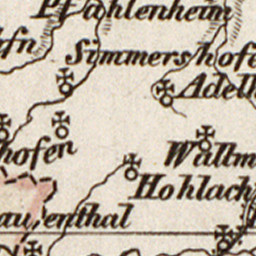 Pfahlenheim
Simmershofe
Adelh
hofen
Wallm
Hohlach
au enthal